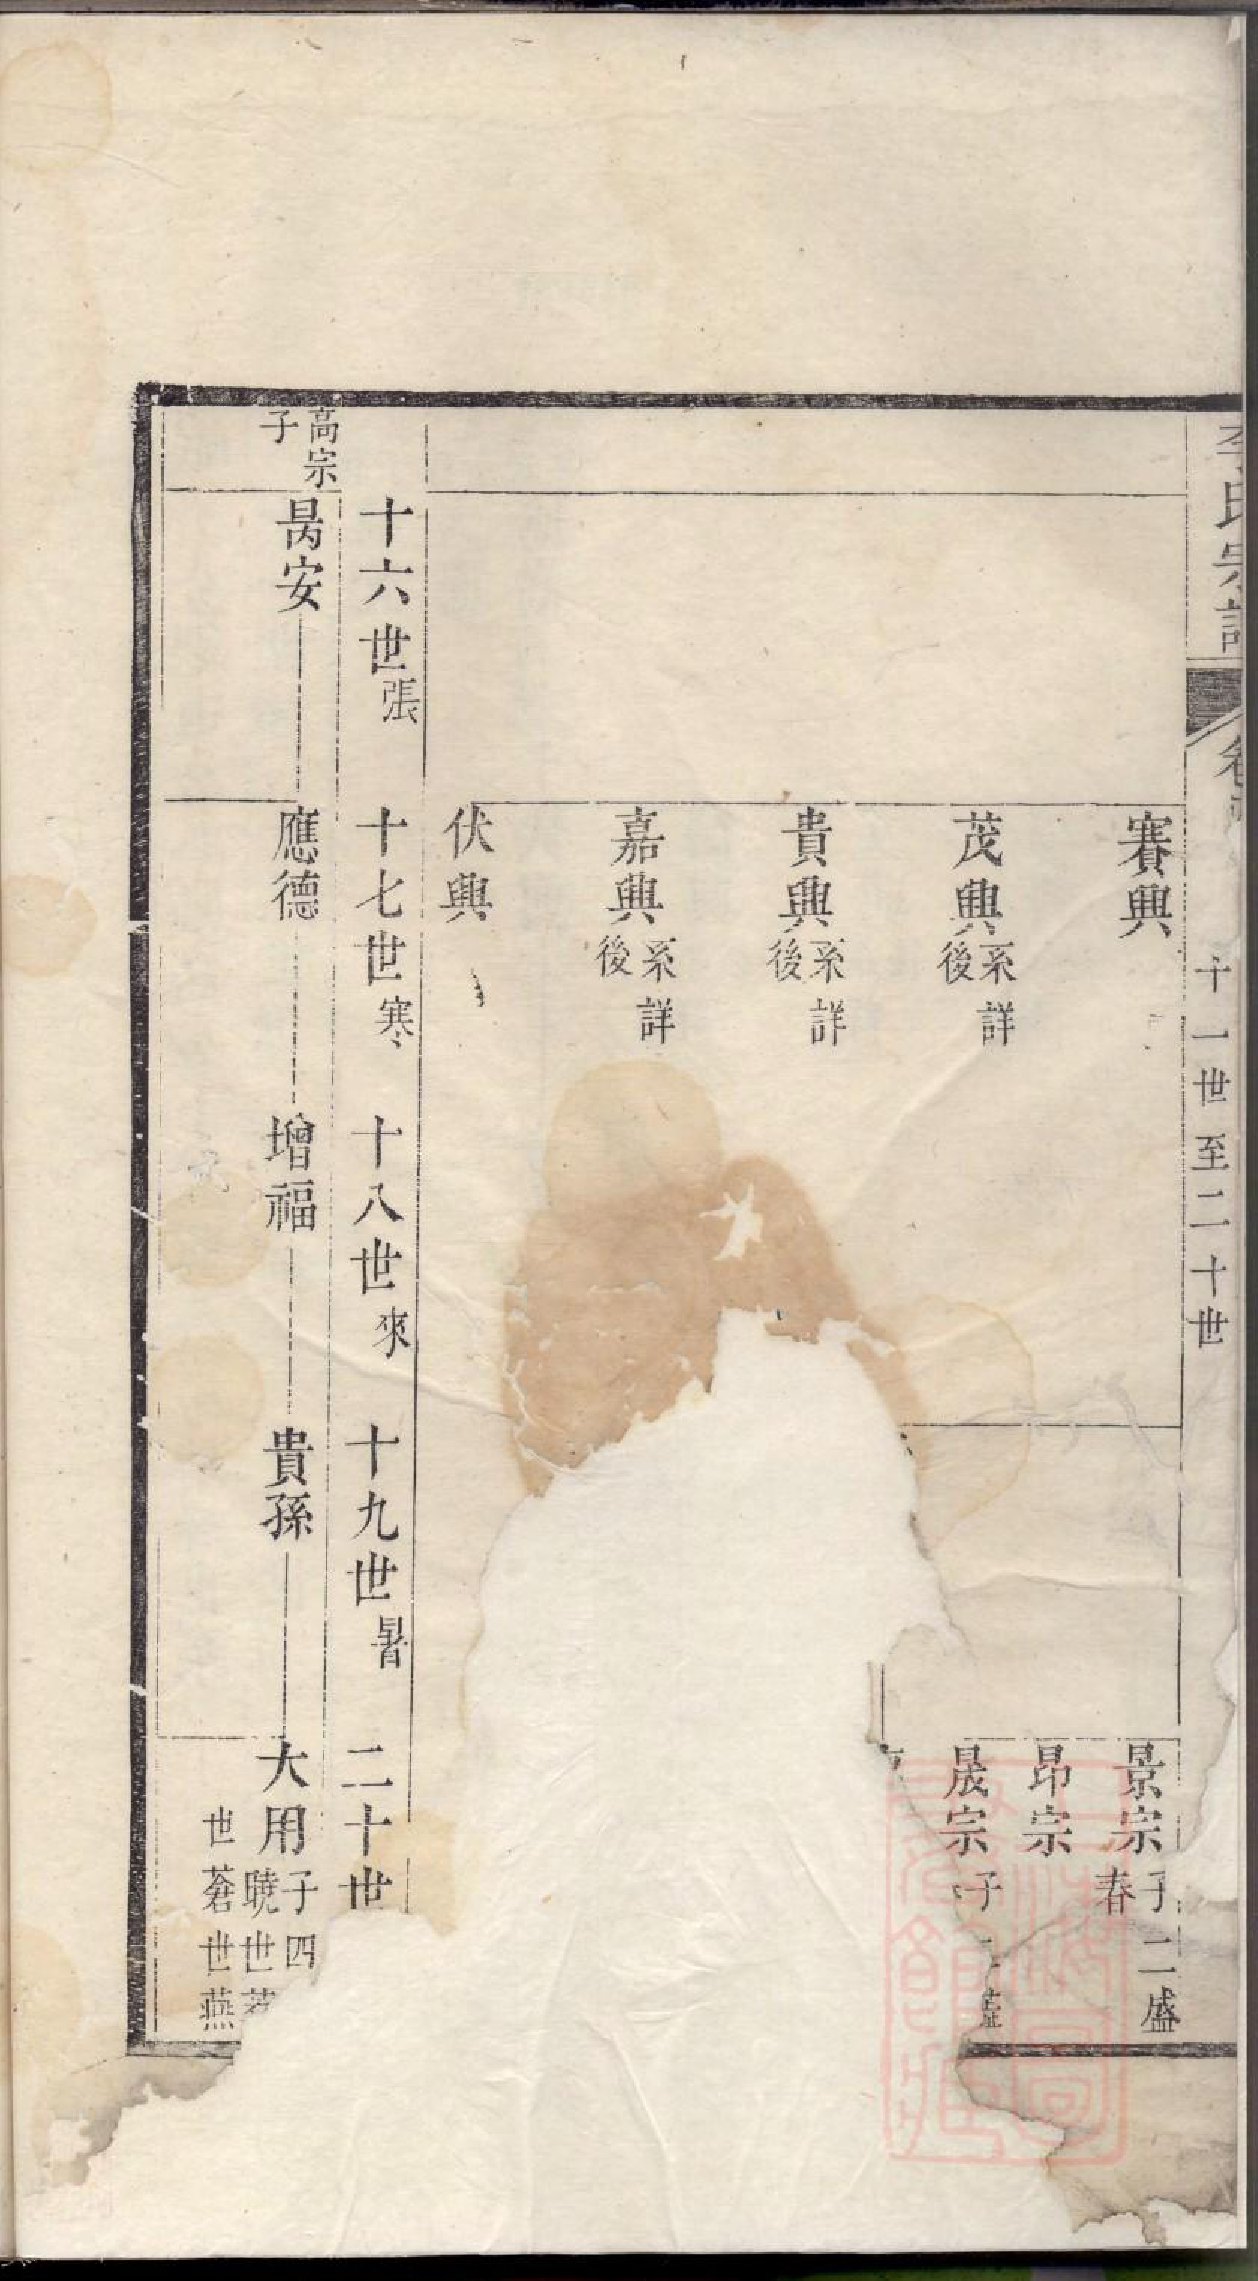 李氏宗譜
十一世至二十世
賽興
茂興 系詳後
貴興 系詳後
嘉興 系詳後
伏興
景宗 子二盛春
昂宗
晟宗 子
十六世張 十七世寒 十八世來 十九世暑 二十世
高宗子
昺安 應德 增福 貴孫 大用 子四
曉世
世蒼世燕